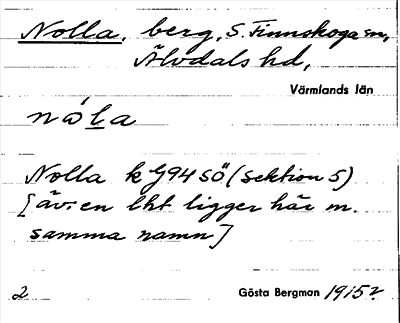 Nolla, berg, S. Finnskoga sn,
Älvdals hd,
Värmlands län
nó̀la
Nolla k g94 SÖ (sektion 5)
[äv. en lht ligger här m.
samma namn]
2 Gösta Bergman 1915